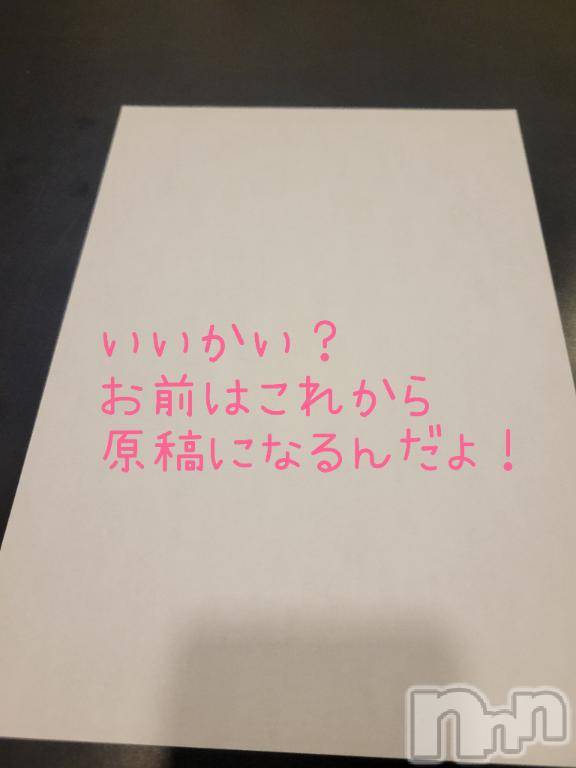 いいかい？
お前はこれから
原稿になるんだよ！
nnn